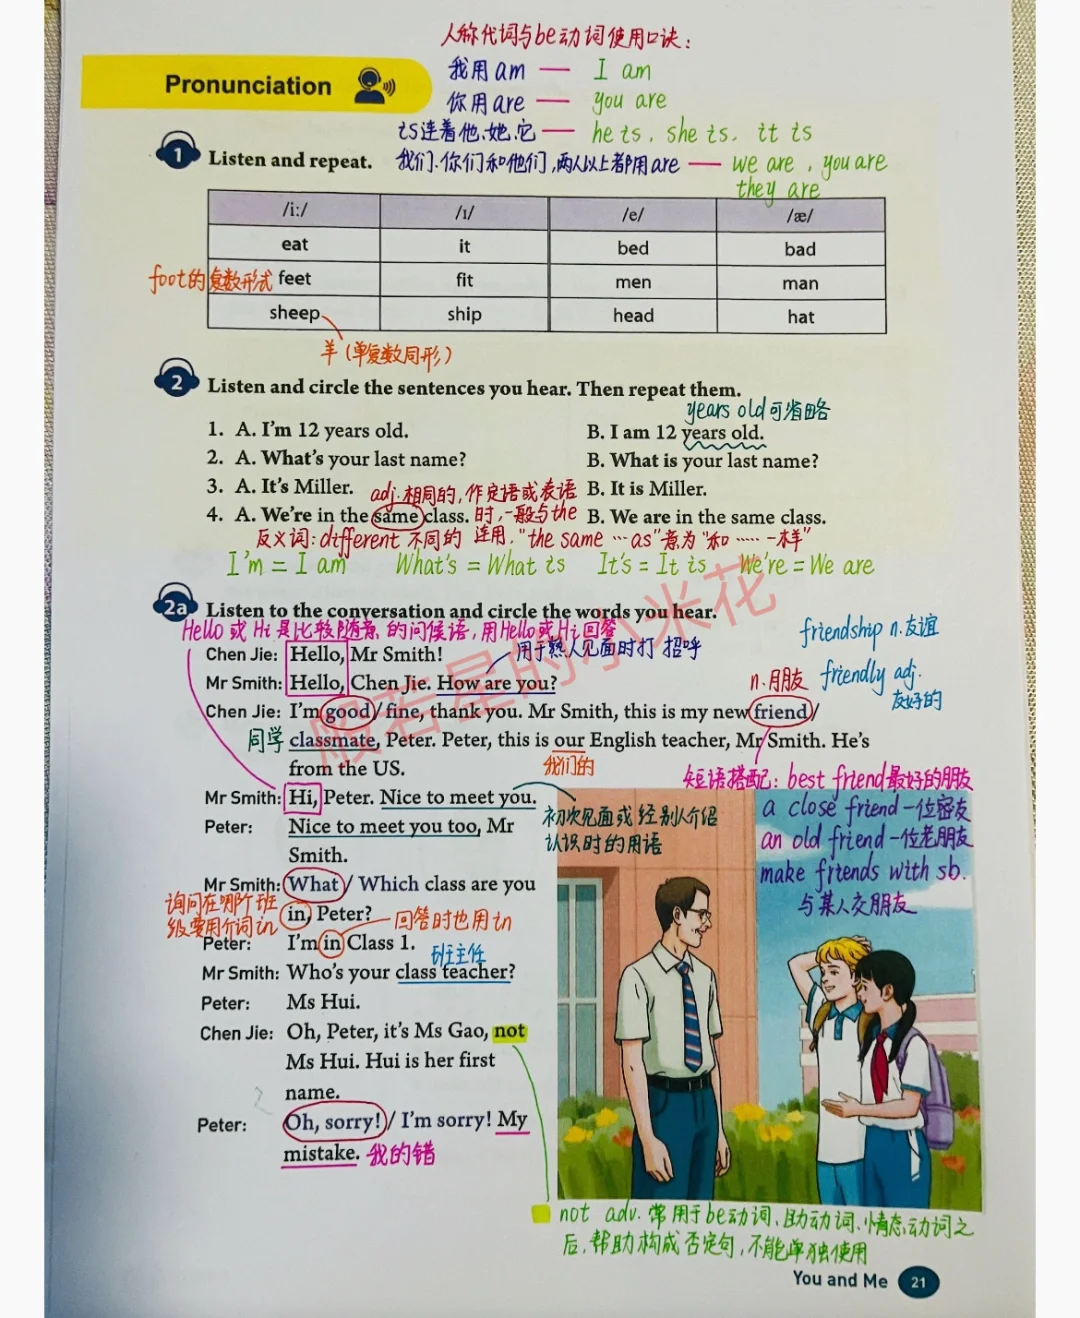 人称代词与be动词使用口诀:
我用am — I am
你用are — you are
is连着他.她.它 — he is. she is. it is
我们.你们和他们,两人以上都用are — we are , you are
they are
Pronunciation
1 Listen and repeat.
/iː/ /ɪ/ /e/ /æ/
eat it bed bad
foot的复数形式 feet fit men man
sheep ship head hat
羊(单复数同形)
2 Listen and circle the sentences you hear. Then repeat them.
years old可省略
1. A. I'm 12 years old. B. I am 12 years old.
2. A. What's your last name? B. What is your last name?
3. A. It's Miller. B. It is Miller.
adj.相同的,作定语或表语
4. A. We're in the same class. B. We are in the same class.
时,一般与the
反义词:different 不同的 连用."the same … as"意为"和……一样"
I'm = I am What's = What is It's = It is We're = We are
2a Listen to the conversation and circle the words you hear.
Hello或Hi是比较随意的问候语,用Hello或Hi回答
friendship n.友谊
Chen Jie: Hello, Mr Smith!
用于熟人见面时打招呼
Mr Smith: Hello, Chen Jie. How are you?
n.朋友
friendly adj.
友好的
Chen Jie: I'm good / fine, thank you. Mr Smith, this is my new friend /
同学 classmate, Peter. Peter, this is our English teacher, Mr Smith. He's
from the US.
我们的
短语搭配: best friend最好的朋友
a close friend一位密友
an old friend一位老朋友
make friends with sb.
与某人交朋友
Mr Smith: Hi, Peter. Nice to meet you.
初次见面或经别人介绍
认识时的用语
Peter: Nice to meet you too, Mr
Smith.
Mr Smith: What / Which class are you
询问在哪个班
级要用介词in
in, Peter?
回答时也用in
Peter: I'm in Class 1.
班主任
Mr Smith: Who's your class teacher?
Peter: Ms Hui.
Chen Jie: Oh, Peter, it's Ms Gao, not
Ms Hui. Hui is her first
name.
Peter: Oh, sorry! / I'm sorry! My
mistake. 我的错
not adv.常用于be动词、助动词、情态动词之
后,帮助构成否定句,不能单独使用
You and Me 21
般若星的小米花